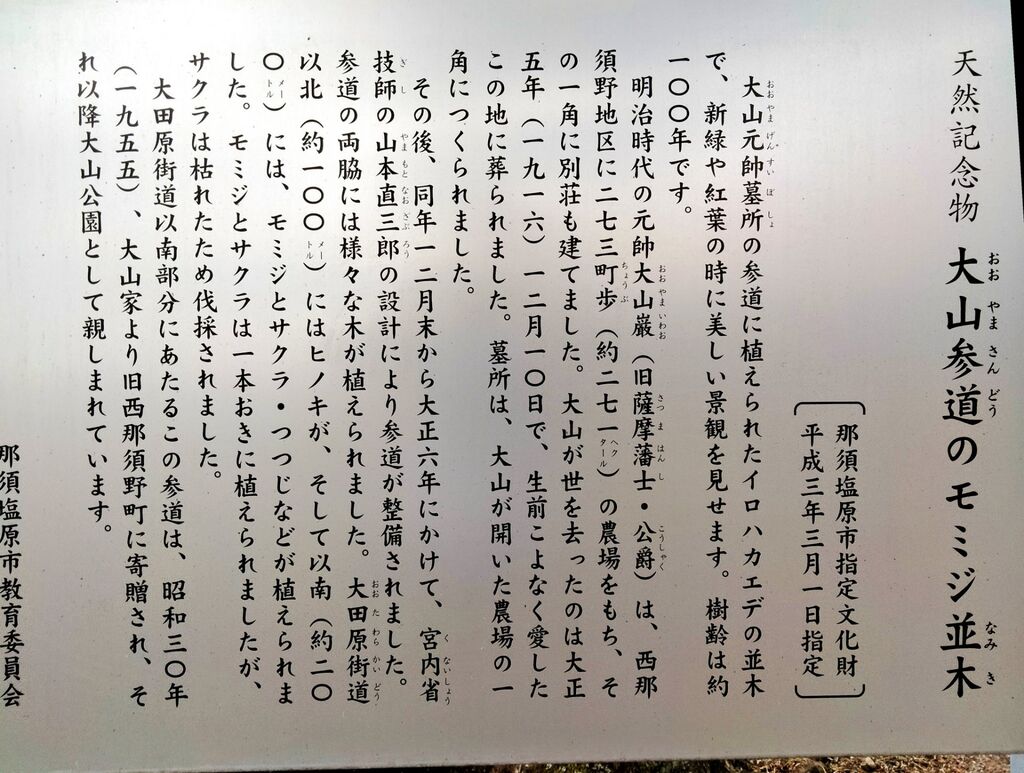 天然記念物 大山参道のモミジ並木
那須塩原市指定文化財
平成三年三月一日指定
大山元帥墓所の参道に植えられたイロハカエデの並木
で、新緑や紅葉の時に美しい景観を見せます。樹齢は約
一〇〇年です。
明治時代の元帥大山巌（旧薩摩藩士・公爵）は、西那
須野地区に二七三町歩（約二七一ヘクタール）の農場をもち、そ
の一角に別荘も建てました。大山が世を去ったのは大正
五年（一九一六）一二月一〇日で、生前こよなく愛した
この地に葬られました。墓所は、大山が開いた農場の一
角につくられました。
その後、同年一二月末から大正六年にかけて、宮内省
技師の山本直三郎の設計により参道が整備されました。
参道の両脇には様々な木が植えられました。大田原街道
以北（約一〇〇メートル）にはヒノキが、そして以南（約二〇
〇メートル）には、モミジとサクラ・つつじなどが植えられま
した。モミジとサクラは一本おきに植えられましたが、
サクラは枯れたため伐採されました。
大田原街道以南部分にあたるこの参道は、昭和三〇年
（一九五五）、大山家より旧西那須野町に寄贈され、そ
れ以降大山公園として親しまれています。
那須塩原市教育委員会